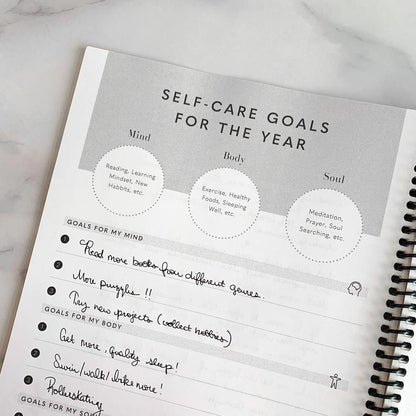 SELF-CARE GOALS
FOR THE YEAR
Mind
Body
Soul
Reading, Learning
Mindset, New
Habits, etc.
Exercise, Healthy
Foods, Sleeping
Well, etc.
Meditation,
Prayer, Soul
Searching, etc.
GOALS FOR MY MIND
1 Read more books from different genres.
2 More puzzles !!
3 Try new projects (collect hobbies)
GOALS FOR MY BODY
1 Get more, quality sleep!
2 Swim/walk/bike more!
3 Rollerskating
GOALS FOR MY SOUL